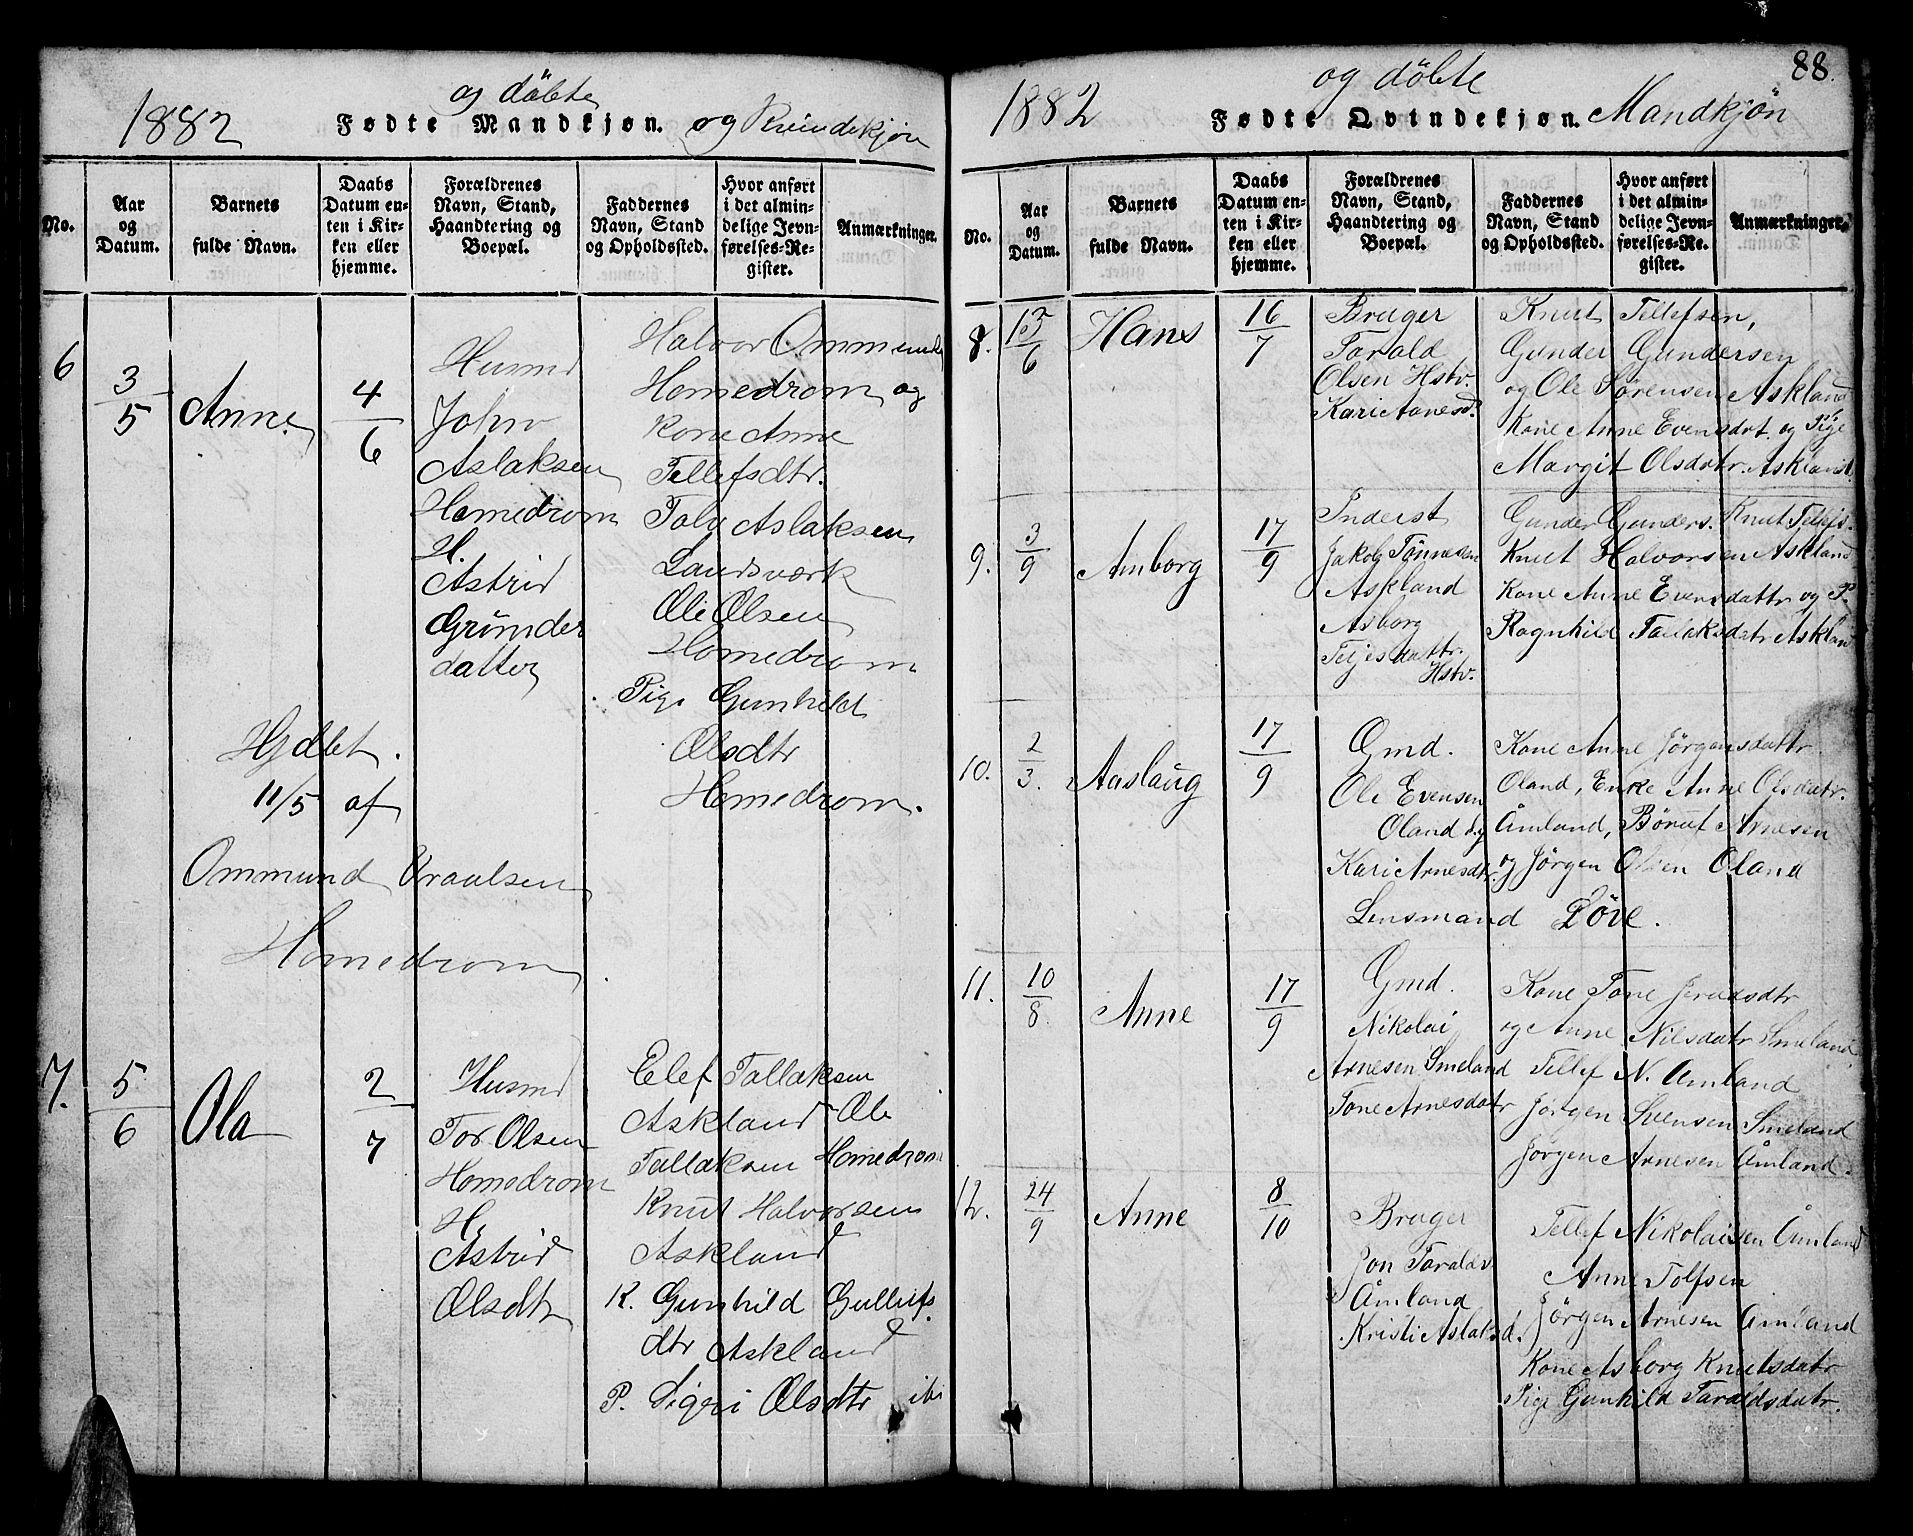 og döbte
1882 Fødte Mandkjøn. og Kvindekjøn
No.
Aar og Datum.
Barnets fulde Navn.
Daabs Datum enten i Kirken eller hjemme.
Forældrenes Navn, Stand, Haandtering og Boepæl.
Faddernes Navn, Stand og Opholdssted.
Hvor anført i det almindelige Jevnførelses-Register.
Anmærkninger.
6
3/5
Anne
4/6
Husmd
John
Aslaksen
Homedrom
H.
Astrid
Grunder
datter
Halvor Ommunds
Homedrom og
Kone Anne
Tellefsdtr.
Tolv Aslaksen
Landsværk
Ole Olsen
Homedrom
Pige Gunhild
Olsdtr
Homedrom.
Hjdbt.
11/5 af
Ommund Vraalsen
Homedrom.
7.
5/6
Ola
2/7
Husmd
Tor Olsen
Homedrom
H.
Astrid
Olsdtr
Elef Tallaksen
Askland Ole
Tallaksen Homedrom
Knut Halvorsen
Askland
K. Gunhild Gullufs
dtr Askland
P. Sigri Olsdtr ibi
88.
og döbte
1882 Fødte Qvindekjøn. Mandkjön
No.
Aar og Datum.
Barnets fulde Navn.
Daabs Datum enten i Kirken eller hjemme.
Forældrenes Navn, Stand, Haandtering og Boepæl.
Faddernes Navn, Stand og Opholdssted.
Hvor anført i det almindelige Jevnførelses-Register.
Anmærkninger.
8.
13/6
Hans
16/7
Bruger
Tarald
Olsen Hstv.
Kari Aanesd.
Knut Tellefsen,
Gunder Gundersen
og Ole Sørensen Askland
Kone Anne Evensdot. og Pige
Margit Olsdatr. Askland
9.
3/9
Amborg
17/9
Inderst
Jakob Tønnesen
Askland
Asborg
Teljesdattr.
Hstv.
Gunder Gunders. Knut Tellefs.
Knut Halvorsen Askland
Kone Anne Evensdattr og P.
Ragnhild Tallaksdatr Askland
10.
2/3.
Aaslaug
17/9
Gmd.
Ole Evensen
Oland og
Kari Arnesdtr.
Kone Anne Jørgensdattr
Oland, Enke Anne Olsdatr.
Åmland, Børuf Arnesen
og Jørgen Olsen Oland
Lensmand Løve.
11.
10/8.
Anne
17/9
Gmd.
Nikolai
Arnesen Smeland
Tone Arnesdatr
Kone Tone Jerudsdtr
og Anne Nilsdatr Smeland
Tellef N. Åmland
Jørgen Svensen Smeland
Jørgen Arnesen Åmland.
12.
24/9
Anne
8/10
Bruger
Jon Taralds.
Åmland
Kristi Aslaksd.
Tellef Nikolaisen Åmland
Anne Tolfsen
Jørgen Arnesen Åmland
Kone Asborg Knutsdatr
Pige Gunhild Taraldsdatr.